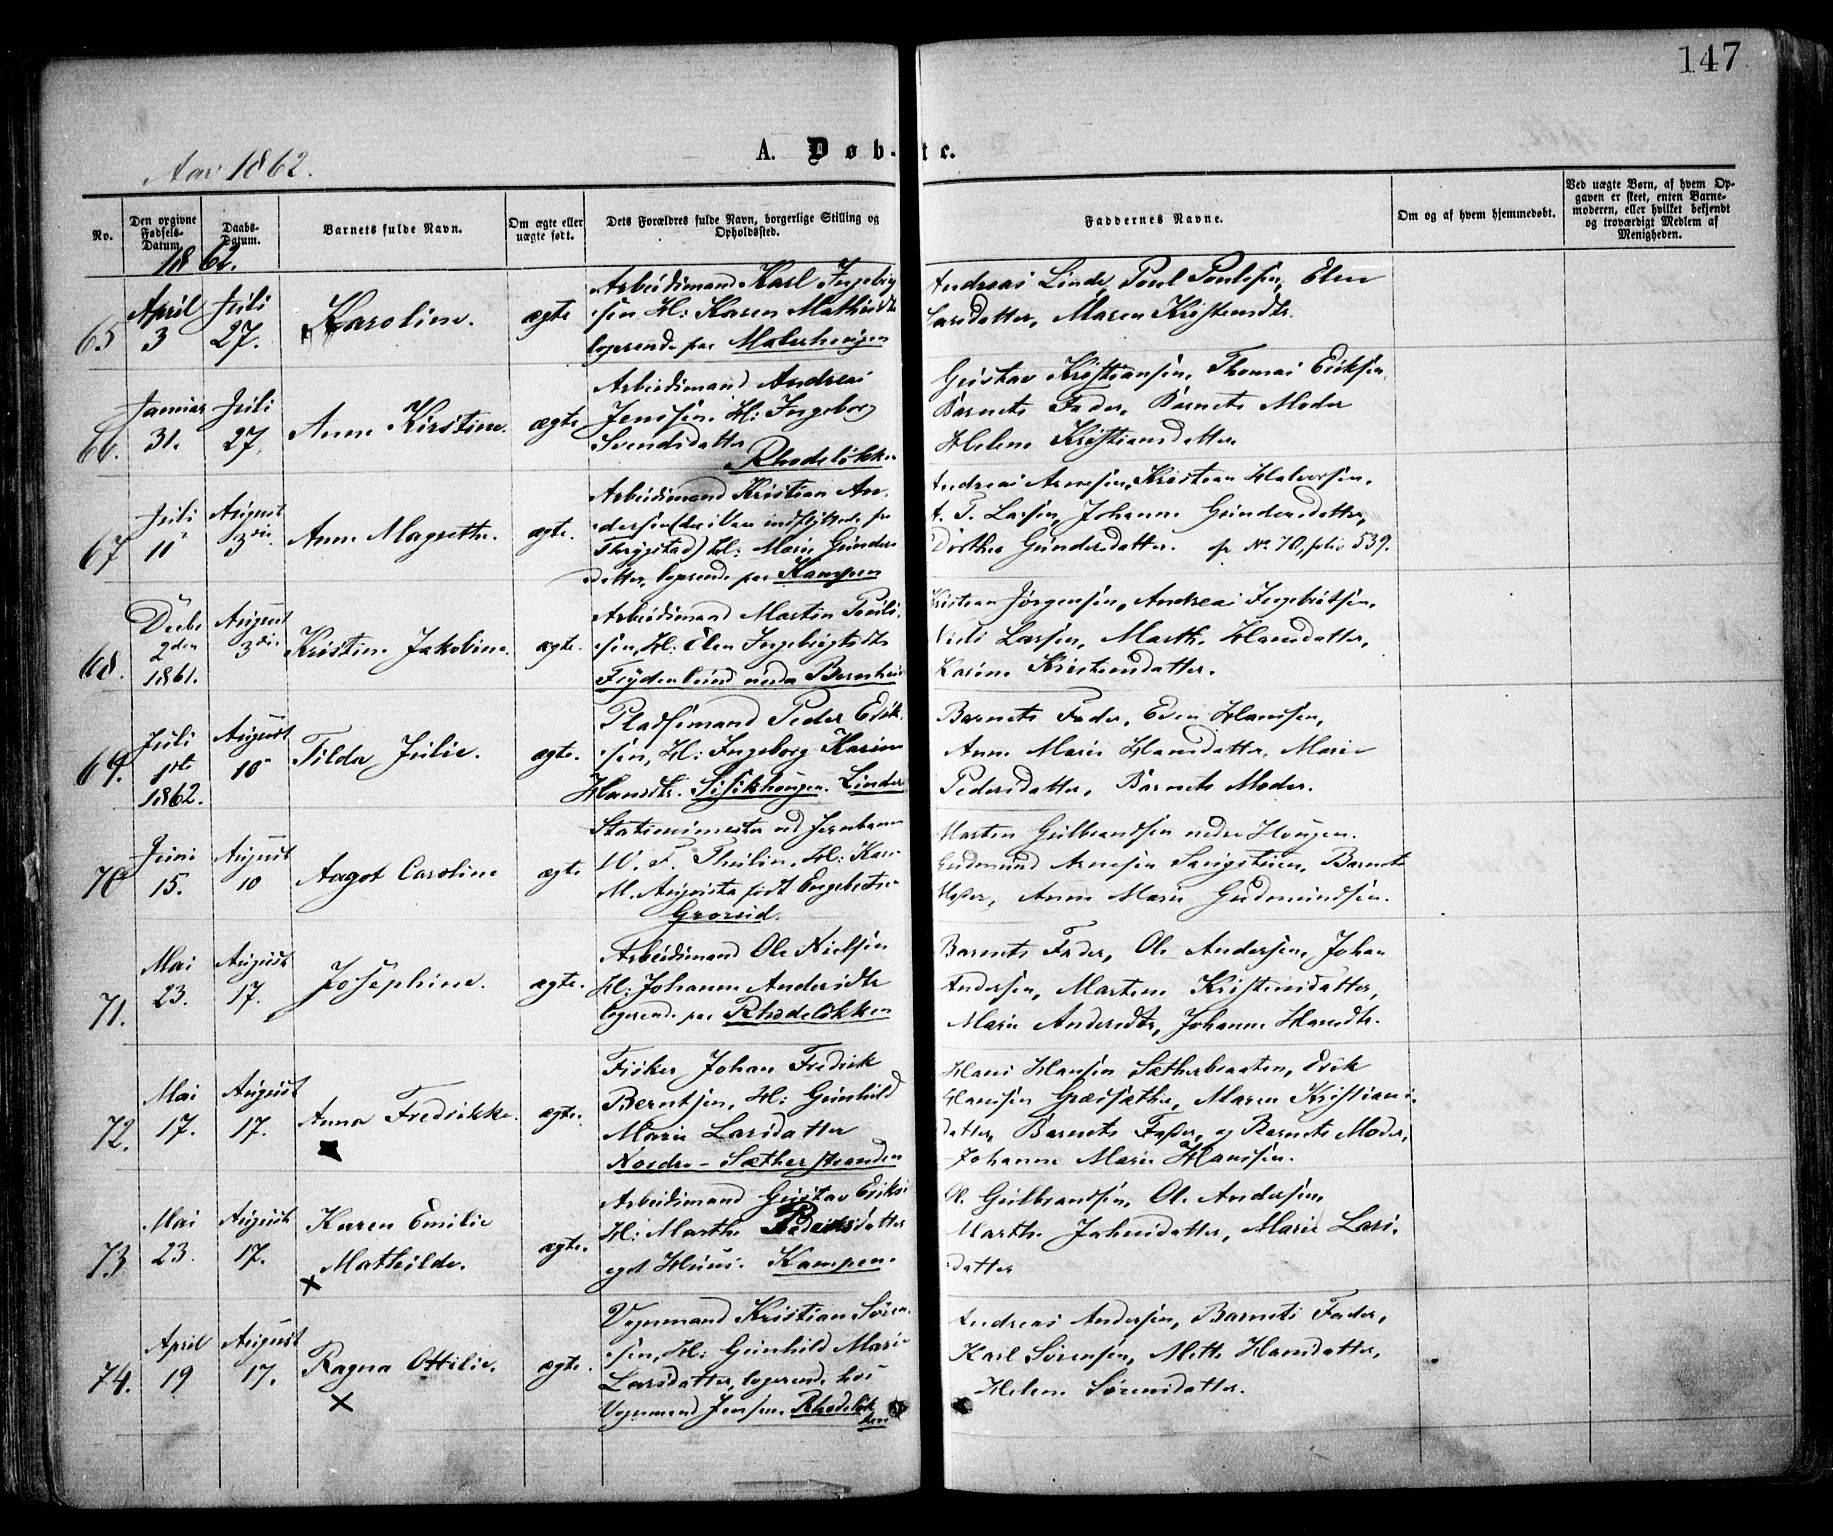 147
Aar 1862.
A. Døb- te.
No.
Den opgivne Fødsels-Datum.
Daabs-Datum.
Barnets fulde Navn.
Om ægte eller uægte født.
Dets Forældres fulde Navn, borgerlige Stilling og Opholdssted.
Faddernes Navne.
Om og af hvem hjemmedøbt.
Ved uægte Børn, af hvem Opgaven er skeet, enten Barnemoderen, eller hvilket bekjendt og troværdigt Medlem af Menigheden.
1862.
65
April 3
Juli 27.
Karoline.
ægte
Arbeidsmand Karl Ingebrigt
sen H: Karen Mathisdtr
logerende paa Malerhaugen
Andreas Linde, Poul Poulsen, Elen
Larsdatter, Maren Kristensdtr.
66.
Januar 31.
Juli 27.
Anne Kirstine.
ægte.
Arbeidsmand Andreas
Jenssen. H: Ingeborg
Svendsdatter
Rhodeløkke
Gustav Kristiansen, Thomas Eriksen,
Barnets Fader, Barnets Moder
Helene Kristiansdatter
67
Juli 11
August 3die
Anne Magrethe.
ægte.
Arbeidsmand Kristian An-
dersen (der i Vaar indflyttede fra
Thrygstad) H: Marie Gunders
datter, logerende paa Kampen
Andreas Arnesen, Kristian Halvorsen,
A. T. Larsen, Johanne Gundersdatter,
Dorthea Gundersdatter. fr No 70, folio 539.
68.
Decbr 2den 1861.
August 3die
Kristine Jakobine.
ægte.
Arbeidsmand Martin Pouls-
sen, H: Elen Ingebrigtsdtr
Frydenlund under Bernhus
Kristian Jørgensen, Andreas Ingebritsen,
Nils Larsen, Marthe Hansdatter,
Karine Kristensdatter.
69.
Juli 1ste 1862.
August 10
Tilda Julie.
ægte.
Pladsemand Peder Erik-
sen, H: Ingeborg Karine
Hansdtr. Sisikhougen. Linder
Barnets Fader, Even Hanssen,
Anne Marie Hansdatter, Marie
Pedersdatter, Barnets Moder.
70
Juni 15.
August 10
Aagot Caroline
ægte
Stationsmester ved Jernbanen
W. F. Thilin, H: Karen
M. Augusta født Engebretsen
Grorud.
Marten Gulbrandsen nedre Hougen.
Gudmund Arnesen Sangstuen, Barnets
Moder, Anne Marie Gudmundsen.
71.
Mai 23.
August 17.
Josephine.
ægte.
Arbeidsmand Ole Nielsen
H: Johanne Andersdtr
logerende paa Rhodeløkken
Barnets Fader, Ole Andersen, Johan
Andersen, Martine Kristensdatter,
Marie Andersdtr, Johanne Hansdtr.
72.
Mai 17.
August 17.
Anna Fredrikke.
ægte.
Fisker Johan Fredrik
Berntsen, H: Gunhild
Marie Larsdatter
Nordre-Sætherstranden
Hans Hansen Sætherbraaten, Erik
Hanssen Græssæther, Maren Kristians-
datter, Barnets Fader, og Barnets Moder,
Johanne Marie Hanssen.
73
Mai 23.
August 17.
Karen Emilie
Mathilde.
x
ægte.
Arbeidsmand Gustav Eriks
H: Marthe Pedersdatter
eget Huus. Kampen.
Ol. Gulbrandsen, Ol. Andersen,
Marthe Johnsdatter, Marie Lars-
datter
74.
April 19
August 17.
Ragna Ottilie.
x
ægte.
Vognmand Kristian Søren-
sen, H: Gunhild Marie
Larsdatter, logerende hos
Vognmand Jensen. Rhodeløk
ken
Andreas Andersen, Barnets Fader,
Karl Sørensen, Mette Hansdatter,
Helene Sørensdatter.